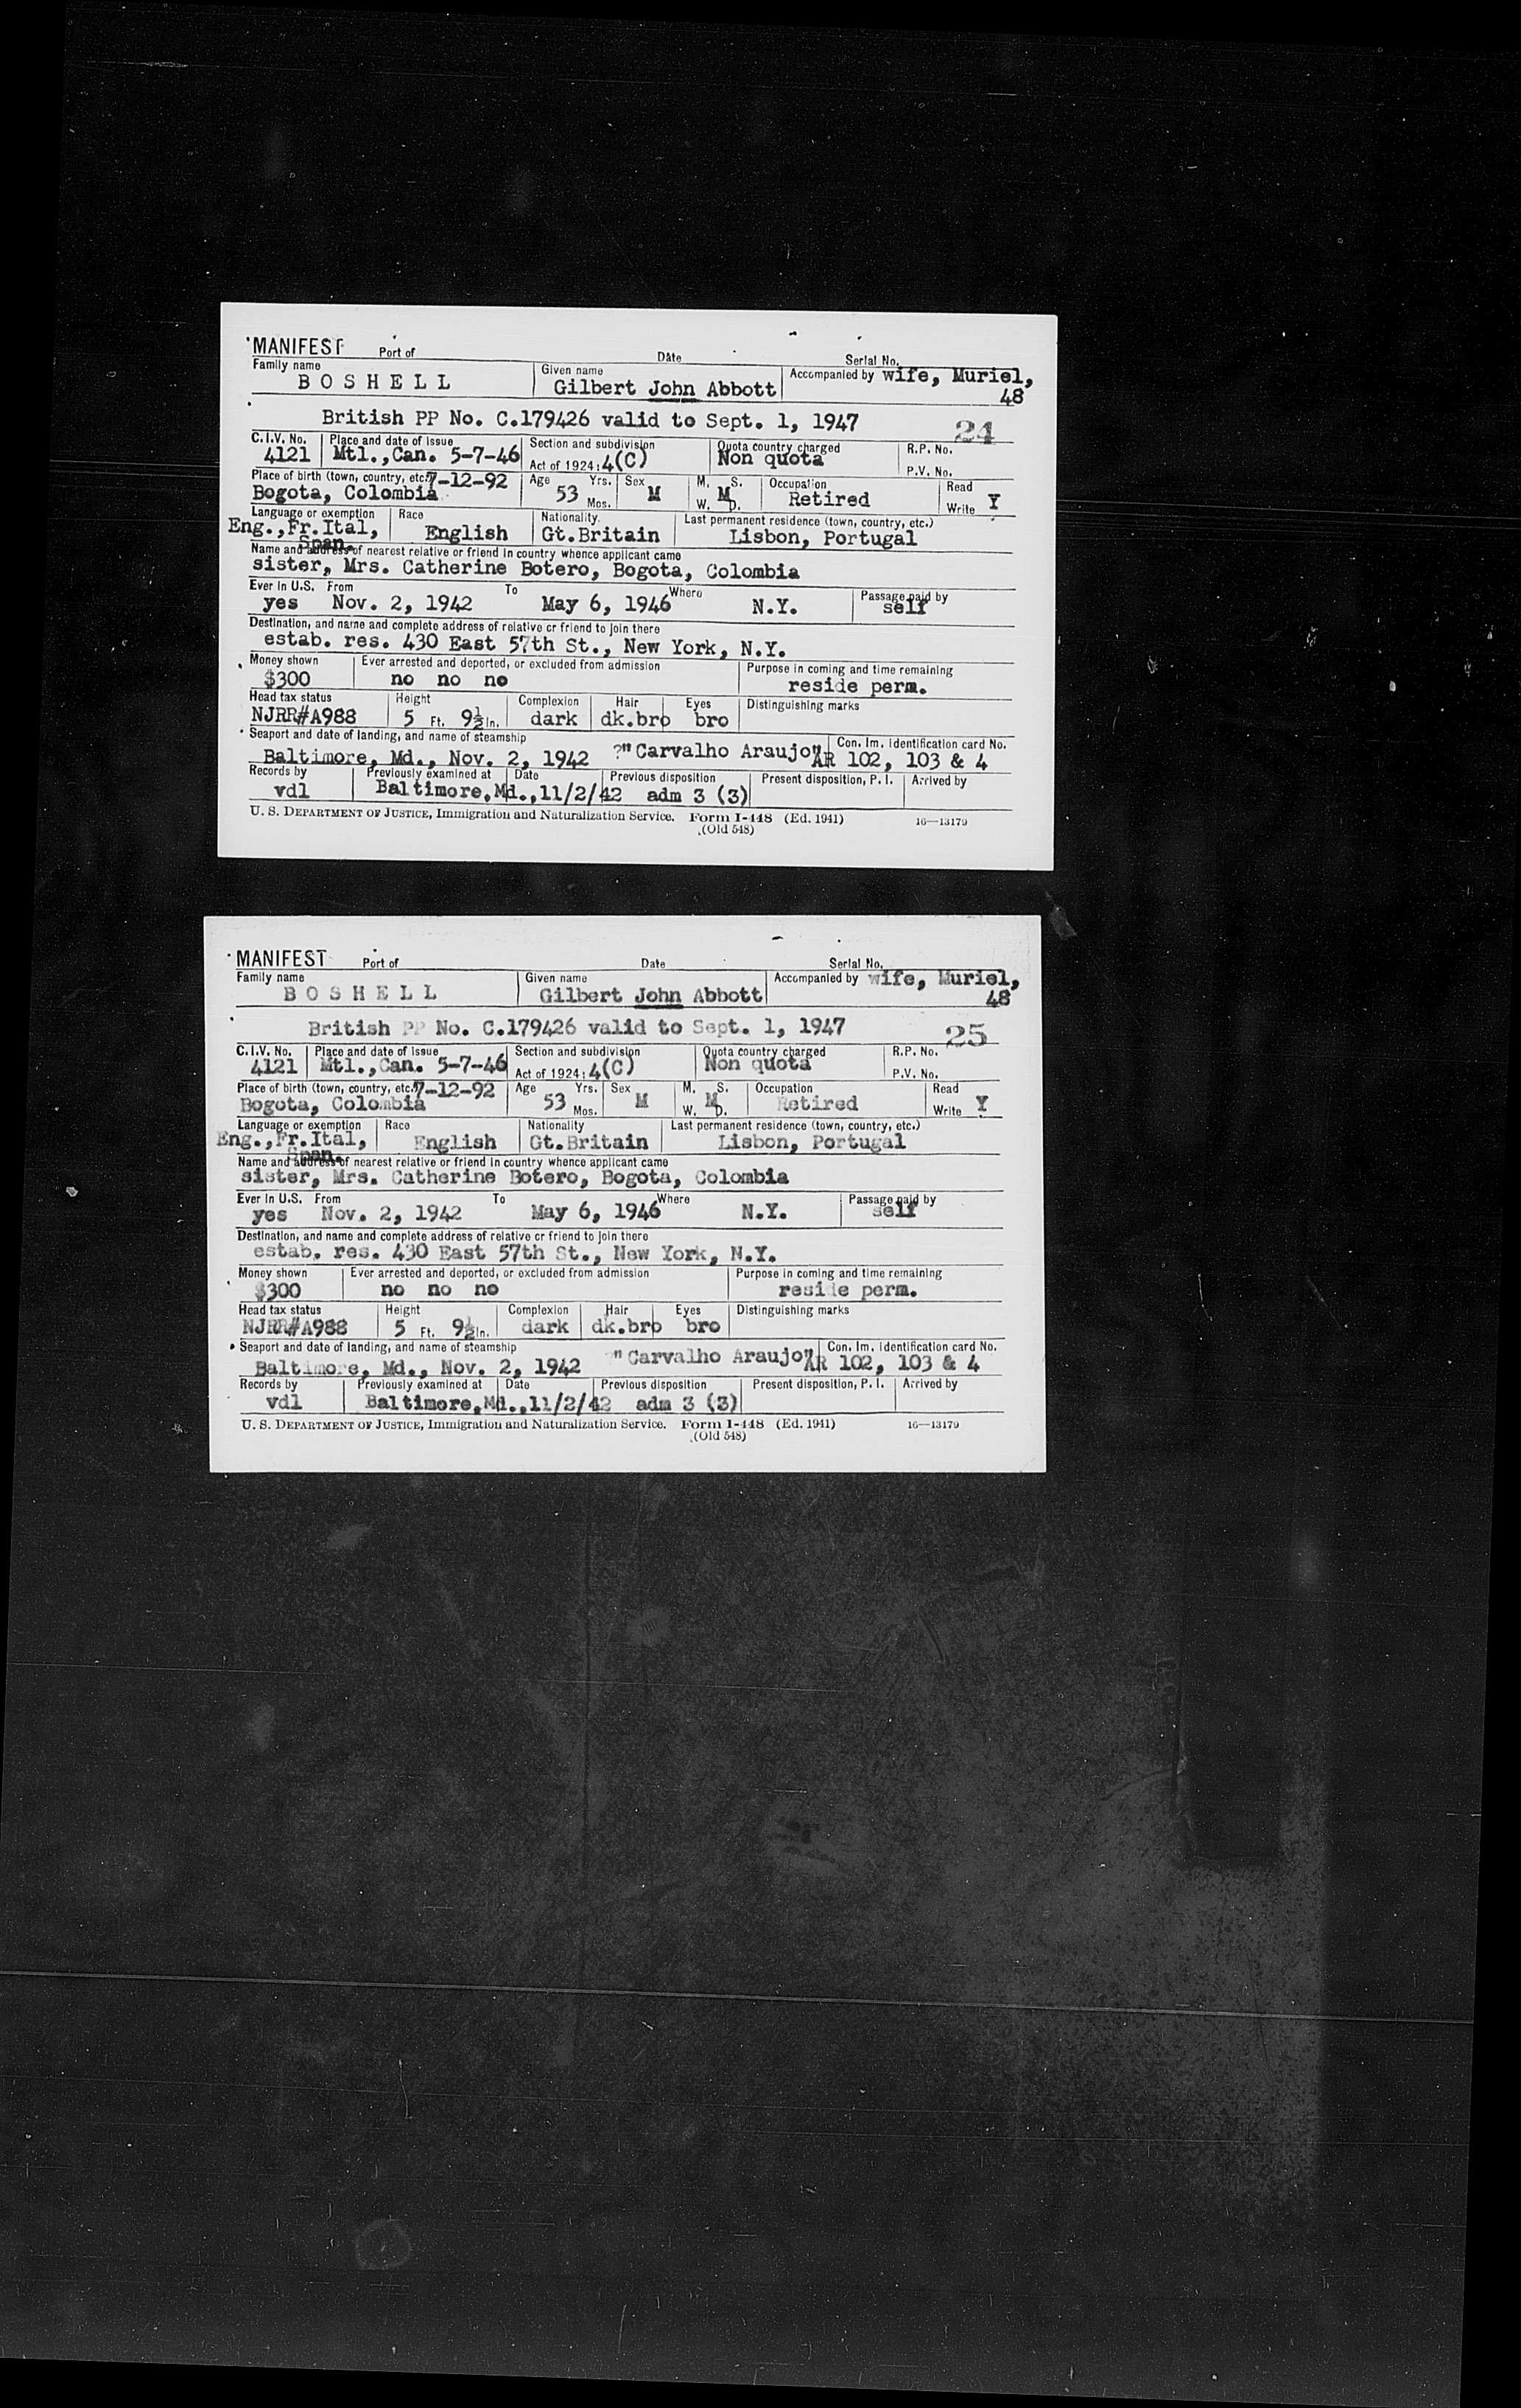 MANIFEST Port of Date Serial No.
Family name Given name Accompanied by wife, Muriel,
BOSHELL Gilbert John Abbott 48
British PP No. C.179426 valid to Sept. 1, 1947 24
C.I.V. No. Place and date of issue Section and subdivision Quota country charged R.P. No.
4121 Mtl.,Can. 5-7-46 Act of 1924: 4(C) Non quota P.V. No.
Place of birth (town, country, etc.) 7-12-92 Age Yrs. Sex M. S. Occupation Read
Bogota, Colombia 53 Mos. M W. M D. Retired Write Y
Language or exemption Race Nationality Last permanent residence (town, country, etc.)
Eng.,Fr.Ital, English Gt.Britain Lisbon, Portugal
Span.
Name and address of nearest relative or friend in country whence applicant came
sister, Mrs. Catherine Botero, Bogota, Colombia
Ever in U.S. From To Where Passage paid by
yes Nov. 2, 1942 May 6, 1946 N.Y. self
Destination, and name and complete address of relative or friend to join there
estab. res. 430 East 57th St., New York, N.Y.
Money shown Ever arrested and deported, or excluded from admission Purpose in coming and time remaining
$300 no no no reside perm.
Head tax status Height Complexion Hair Eyes Distinguishing marks
NJRR#A988 5 Ft. 9½ In. dark dk.bro bro
Seaport and date of landing, and name of steamship Con. Im. Identification card No.
Baltimore, Md., Nov. 2, 1942 ?"Carvalho Araujo" AR 102, 103 & 4
Records by Previously examined at Date Previous disposition Present disposition, P. I. Arrived by
vdl Baltimore,Md.,11/2/42 adm 3 (3)
U. S. DEPARTMENT OF JUSTICE, Immigration and Naturalization Service. Form I-448 (Ed. 1941) 16—13179
(Old 548)
MANIFEST Port of Date Serial No.
Family name Given name Accompanied by wife, Muriel,
BOSHELL Gilbert John Abbott 48
British PP No. C.179426 valid to Sept. 1, 1947 25
C.I.V. No. Place and date of issue Section and subdivision Quota country charged R.P. No.
4121 Mtl.,Can. 5-7-46 Act of 1924: 4(C) Non quota P.V. No.
Place of birth (town, country, etc.) 7-12-92 Age Yrs. Sex M. S. Occupation Read
Bogota, Colombia 53 Mos. M W. M D. Retired Write Y
Language or exemption Race Nationality Last permanent residence (town, country, etc.)
Eng.,Fr.Ital, English Gt.Britain Lisbon, Portugal
Span.
Name and address of nearest relative or friend in country whence applicant came
sister, Mrs. Catherine Botero, Bogota, Colombia
Ever in U.S. From To Where Passage paid by
yes Nov. 2, 1942 May 6, 1946 N.Y. self
Destination, and name and complete address of relative or friend to join there
estab. res. 430 East 57th St., New York, N.Y.
Money shown Ever arrested and deported, or excluded from admission Purpose in coming and time remaining
$300 no no no reside perm.
Head tax status Height Complexion Hair Eyes Distinguishing marks
NJRR#A988 5 Ft. 9½ In. dark dk.bro bro
Seaport and date of landing, and name of steamship Con. Im. Identification card No.
Baltimore, Md., Nov. 2, 1942 "Carvalho Araujo" AR 102, 103 & 4
Records by Previously examined at Date Previous disposition Present disposition, P. I. Arrived by
vdl Baltimore,Md.,11/2/42 adm 3 (3)
U. S. DEPARTMENT OF JUSTICE, Immigration and Naturalization Service. Form I-448 (Ed. 1941) 16—13179
(Old 548)